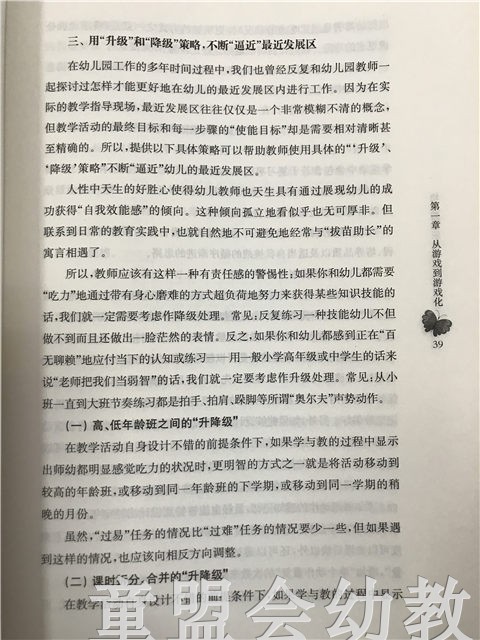 三、用“升级”和“降级”策略,不断“逼近”最近发展区
在幼儿园工作的多年时间过程中,我们也曾经反复和幼儿园教师一
起探讨过怎样才能更好地在幼儿的最近发展区内进行工作。因为在实
际的教学指导现场,最近发展区往往仅仅是一个非常模糊不清的概念,
但教学活动的最终目标和每一步骤的“使能目标”却是需要相对清晰甚
至精确的。所以,提供以下具体策略可以帮助教师使用具体的“‘升级’、
‘降级’策略”不断“逼近”幼儿的最近发展区。
人性中天生的好胜心使得幼儿教师也天生具有通过展现幼儿的成
功获得“自我效能感”的倾向。这种倾向孤立地看似乎也无可厚非。但
联系到日常的教育实践中,也就自然地不可避免地经常与“拔苗助长”的
寓言相遇了。
所以,教师应该有这样一种有责任感的警惕性:如果你和幼儿都需要
“吃力”地通过带有身心磨难的方式超负荷地努力来获得某些知识技能的
话,我们就一定需要考虑作降级处理。常见:反复练习一种技能幼儿不但
做不到而且还做出一脸茫然的表情。反之,如果你和幼儿都感到正在“百
无聊赖”地应付当下的认知或练习——用一般小学高年级或中学生的话来
说“老师把我们当弱智”的话,我们就一定要考虑作升级处理。常见:从小
班一直到大班节奏练习都是拍手、拍肩、跺脚等所谓“奥尔夫”声势动作。
(一) 高、低年龄班之间的“升降级”
在教学活动自身设计不错的前提条件下,如果学与教的过程中显示
出师幼都明显感觉吃力的状况时,更明智的方式之一就是将活动移动到
较高的年龄班,或移动到同一年龄班的下学期,或移动到同一学期的稍
晚的月份。
虽然,“过易”任务的情况比“过难”任务的情况要少一些,但如果遇
到这样的情况,也应该向相反方向调整。
(二) 课时 分,合并的“升降级”
在教学 设计 前提条件下,如果学与教的过程中显示
第一章 从游戏到游戏化
39
童盟会幼教